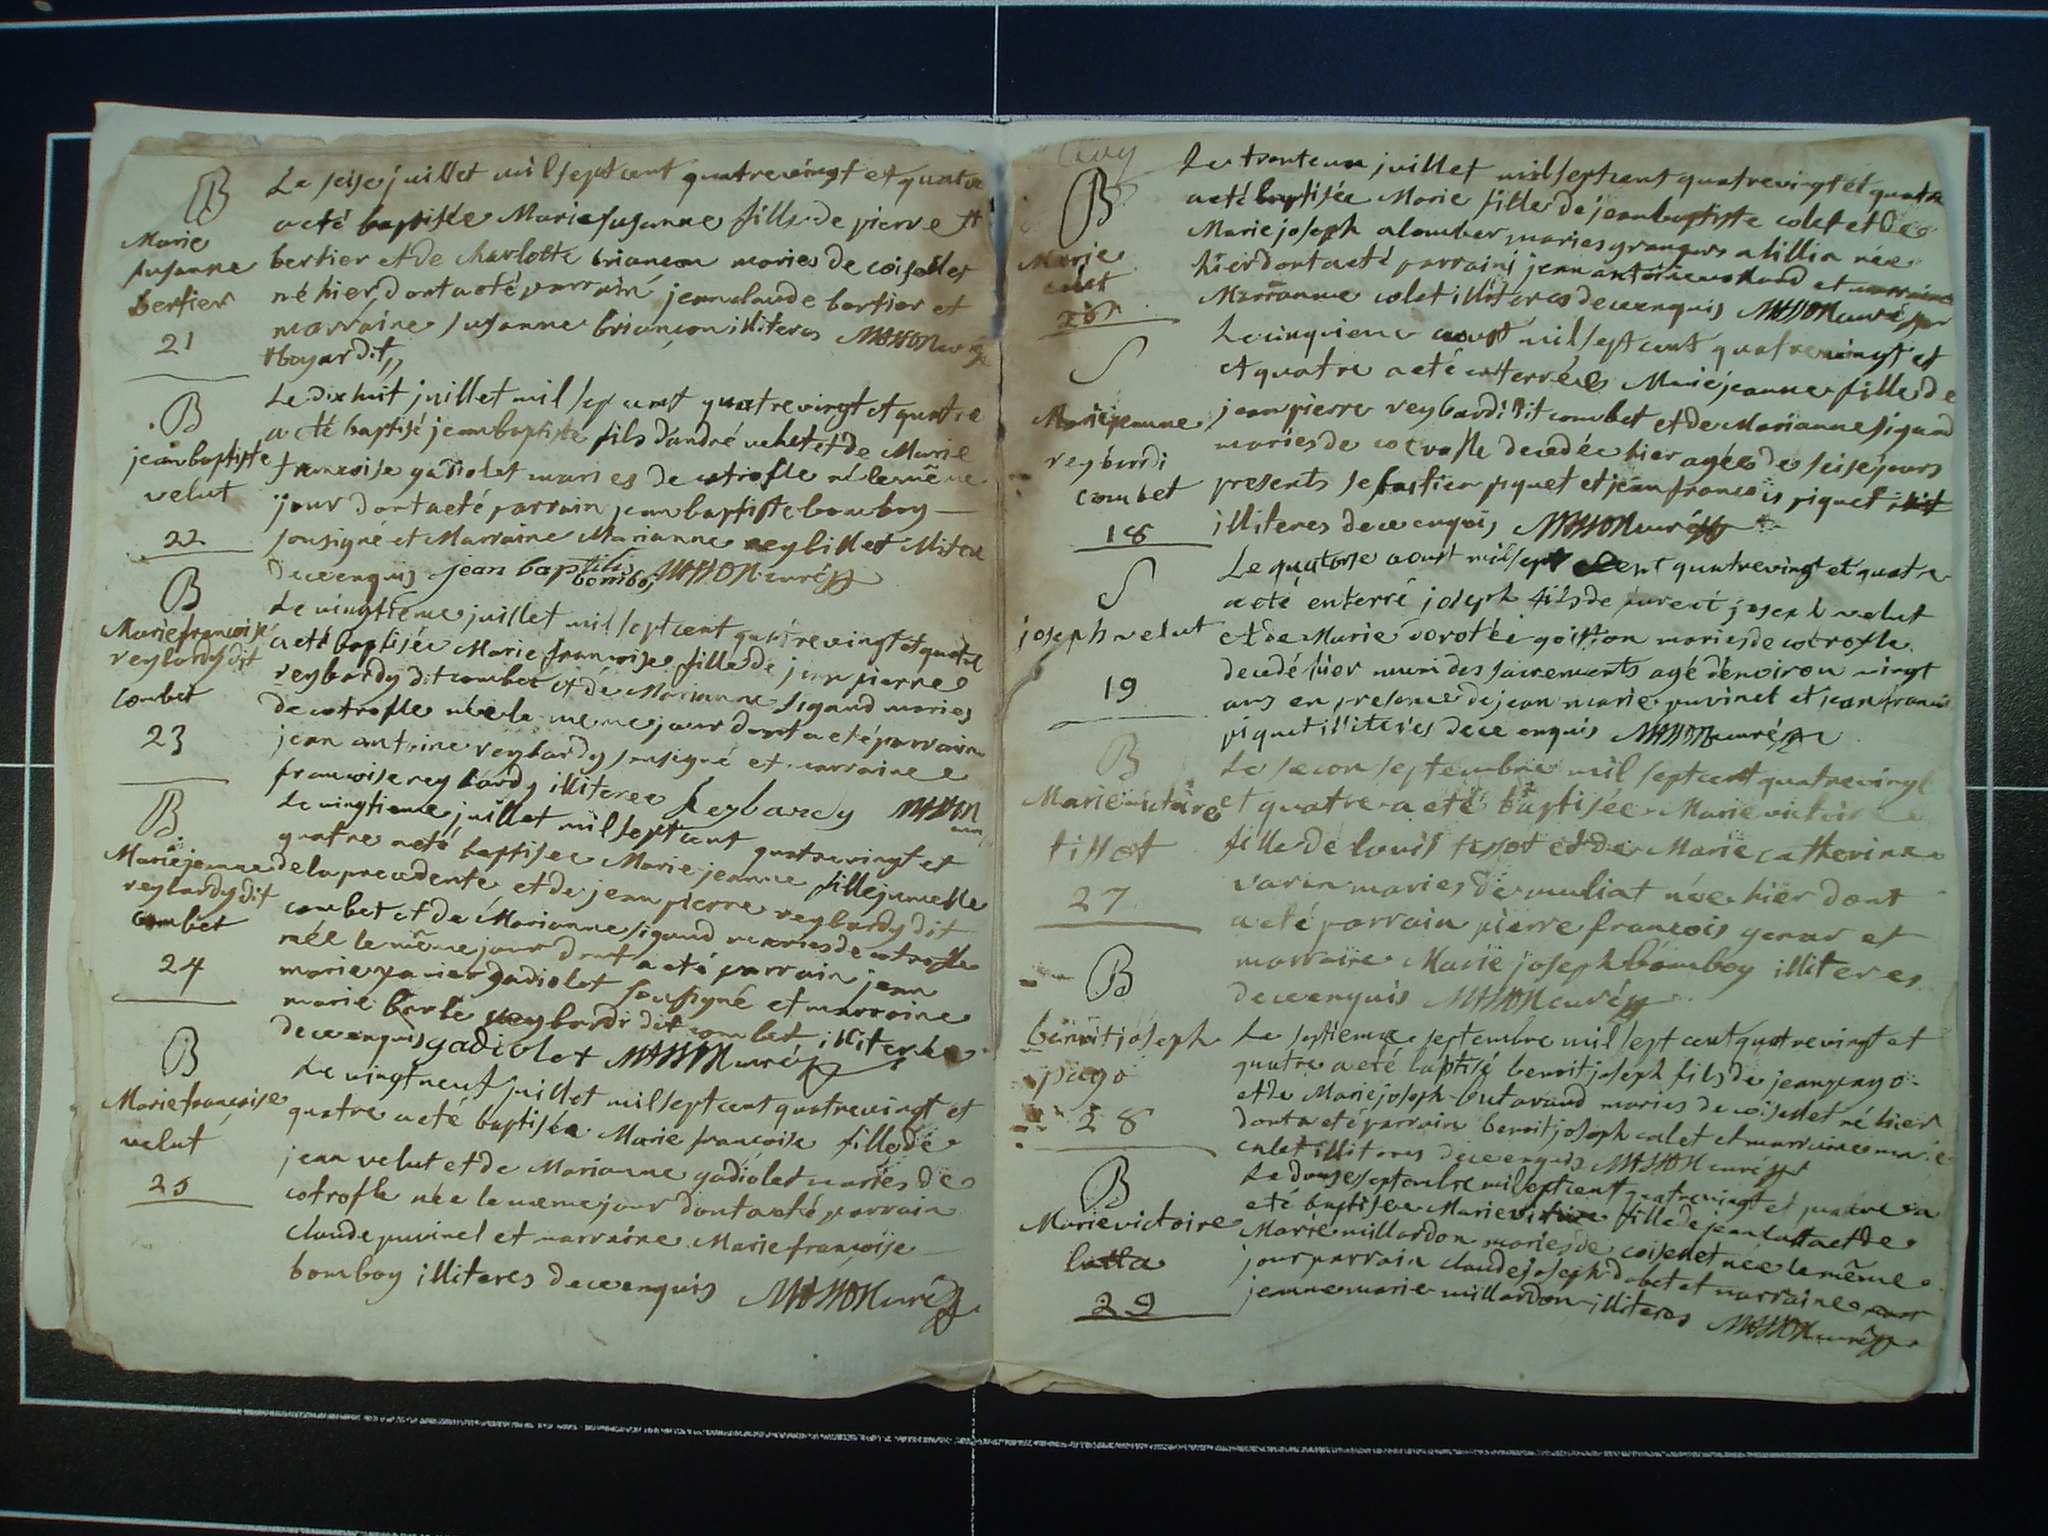 B
Marie
susanne
bertier
21
Le seise juillet mil sept cent quatrevingt et quatre
a eté baptisée Marie susanne fille de pierre #
bertier et de charlotte briancon maries de coisellet
né hier dont a eté parrain jean claude bertier et
marraine susanne briancon illiteres MASSON curé
# boyardit
B
jean baptiste
velut
22
Le dix huit juillet mil sept cent quatrevingt et quatre
a eté baptisé jean baptiste fils d'andré velut et de Marie
francoise gadiolet maries de cotrofle né le même
jour dont a eté parrain jean baptiste bomboy
sousigné et Marraine Marianne reybillet illitere
de ce enquis jean baptiste bomboy MASSON curé
B
Marie francoise
reybardy dit
combet
23
Le vingtieme juillet mil sept cent quatrevingt et quatre
a eté baptisée Marie francoise fille de jean pierre
reybardy dit combet et de Marianne sigaud maries
de cotrofle née le meme jour dont a eté parrain
jean antoine reybardy sousigné et marraine
francoise reybardy illiteree Reybardy MASSON
curé
B
Marie jeanne
reybardy dit
combet
24
Le vingtieme juillet mil sept cent quatrevingt et
quatre a eté baptisée Marie jeanne fille jumelle
de la precedente et de jean pierre reybardy dit
combet et de Marianne sigaud maries de cotrofle
née le même jour dont a eté parrain jean
marie xavier gadiolet soussigné et marraine
marie reybardi dit combet illiteree
de ce enquis gadiolet MASSON curé
B
Marie francoise
velut
25
Le vingt neuf juillet mil sept cent quatrevingt et
quatre a eté baptisée Marie francoise fille de
jean velut et de Marianne gadiolet maries de
cotrofle née le meme jour dont a eté parrain
claude puvinel et marraine Marie francoise
bomboy illiteres de ce enquis MASSON curé
B
Marie
colet
26
Le trente un juillet mil sept cent quatrevingt et quatre
a eté baptisée Marie fille de jean baptiste colet et de
Marie joseph alomber maries grangers a tillia née
hier dont a eté parrain jean antoine et
Marianne colet illiteres de ce enquis MASSON curé
S
Marie jeanne
reybardi
combet
18
Le cinquieme aoust mil sept cent quatrevingt et
et quatre a eté enterrée Marie jeanne fille de
jean pierre reybardi dit combet et de Marianne sigaud
maries de cotrofle decedée hier agée de seise jours
presents sebastien piquet et jean francois piquet
illiteres de ce enquis MASSON curé
S
joseph velut
19
Le quatorse aoust mil sept cent quatrevingt et quatre
a eté enterré joseph fils de joseph velut
et de Marie dorotée goitton maries de cotrofle
decedé hier muni des sacrements agé d'environ vingt
ans en presence de jean marie puvinel et jean francois
piquet illiteres de ce enquis MASSON curé
B
Marie victoire
tissot
27
Le secon septembre mil sept cent quatrevingt
et quatre a eté baptisée Marie victoire
fille de louis tissot et de Marie catherine
varin maries de muliat née hier dont
a eté parrain pierre francois genar et
marraine Marie joseph bomboy illiteres
de ce enquis MASSON curé
B
benoit joseph
pago
28
Le septieme septembre mil sept cent quatrevingt et
quatre a eté baptisé benoit joseph fils de jean pago
et de Marie joseph butavand maries de coisellet né hier
dont a eté parrain benoit joseph calet et marraine marie
calet illiteres de ce enquis MASSON curé
B
Marie victoire
latta
29
Le douse septembre mil sept cent quatrevingt et quatre a
eté baptisée Marie victoire fille de jean latta et de
Marie millardon maries de coisellet née le même
jour parrain claude joseph dabet et marraine
jeanne marie millardon illiteres MASSON curé